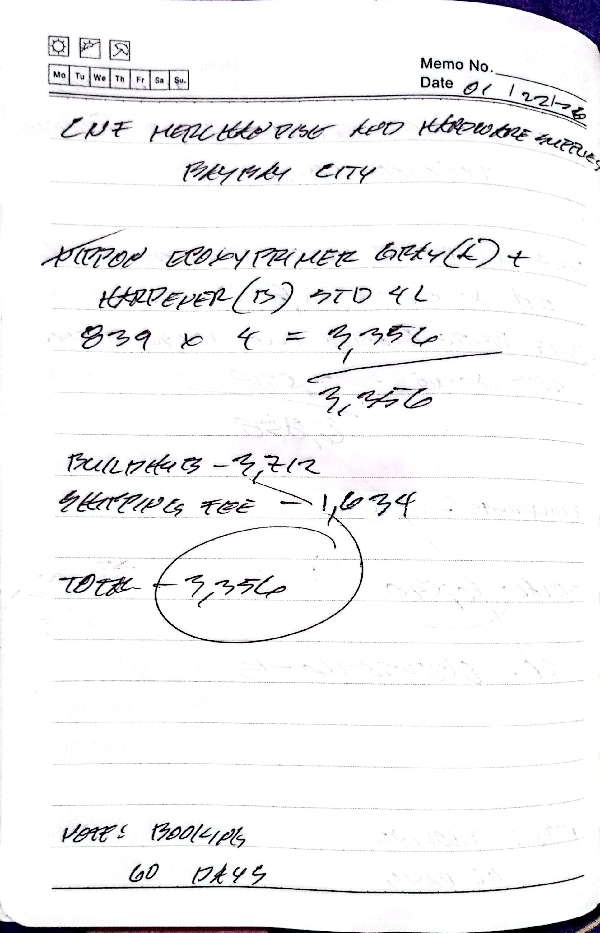 Mo Tu We Th Fr Sa Su.
Memo No.
Date 01/22/26
LNE MERCHANDISE AND HARDWARE SUPPLIES
BAYBAY CITY
NIPPON EPOXY PRIMER GRAY (A) +
HARDENER (B) STD 4L
839 x 4 = 3,356
3,356
BUILDHUB - 3,712
SHIPPING FEE - 1,634
TOTAL - 3,356
NOTE: BOOKING
60 DAYS